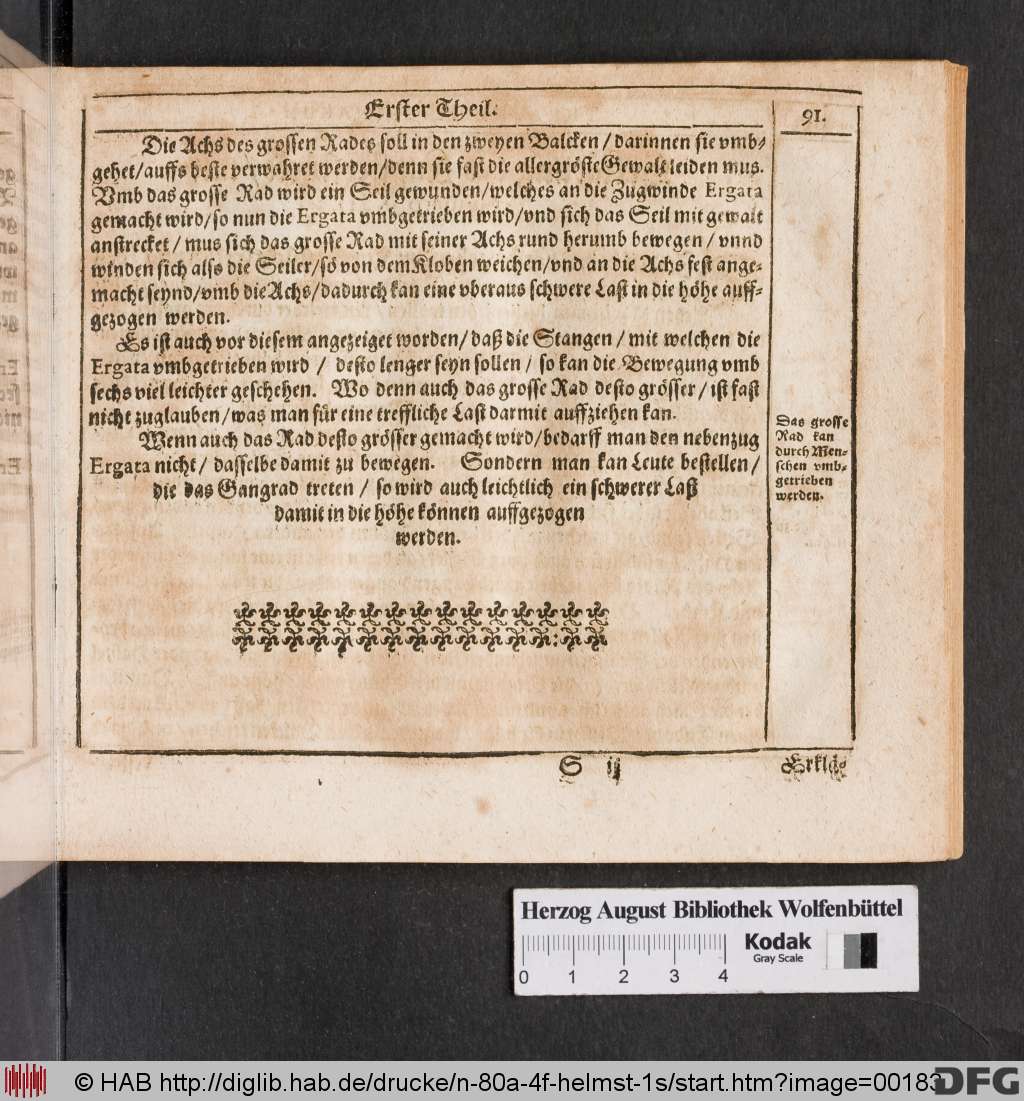 Erster Theil.
91.
Die Achs des grossen Rades soll in den zweyen Balcken / darinnen sie vmb-
gehet/auffs beste verwahret werden/denn sie fast die allergröste Gewalt leiden mus.
Vmb das grosse Rad wird ein Seil gewunden/welches an die Zugwinde Ergata
gemacht wird/so nun die Ergata vmbgetrieben wird/vnd sich das Seil mit gewalt
anstrecket / mus sich das grosse Rad mit seiner Achs rund herumb bewegen / vnnd
winden sich alss die Seiler/so von dem Kloben weichen/vnd an die Achs fest ange-
macht seynd/vmb die Achs/dadurch kan eine vberaus schwere Last in die höhe auff-
gezogen werden.
Es ist auch vor diesem angezeiget worden/daß die Stangen / mit welchen die
Ergata vmbgetrieben wird / desto lenger seyn sollen / so kan die Bewegung vmb
sechs viel leichter geschehen. Wo denn auch das grosse Rad desto grösser / ist fast
nicht zuglauben/was man für eine treffliche Last darmit auffziehen kan.
Wenn auch das Rad desto grösser gemacht wird/bedarff man den nebenzug
Ergata nicht/ dasselbe damit zu bewegen. Sondern man kan Leute bestellen/
die das Gangrad treten / so wird auch leichtlich ein schwerer Last
damit in die höhe können auffgezogen
werden.
Das grosse
Rad kan
durch Men-
schen vmb-
getrieben
werden.
S ij
Erklä-
Herzog August Bibliothek Wolfenbüttel
0 1 2 3 4
Kodak
Gray Scale
© HAB http://diglib.hab.de/drucke/n-80a-4f-helmst-1s/start.htm?image=00183
DFG